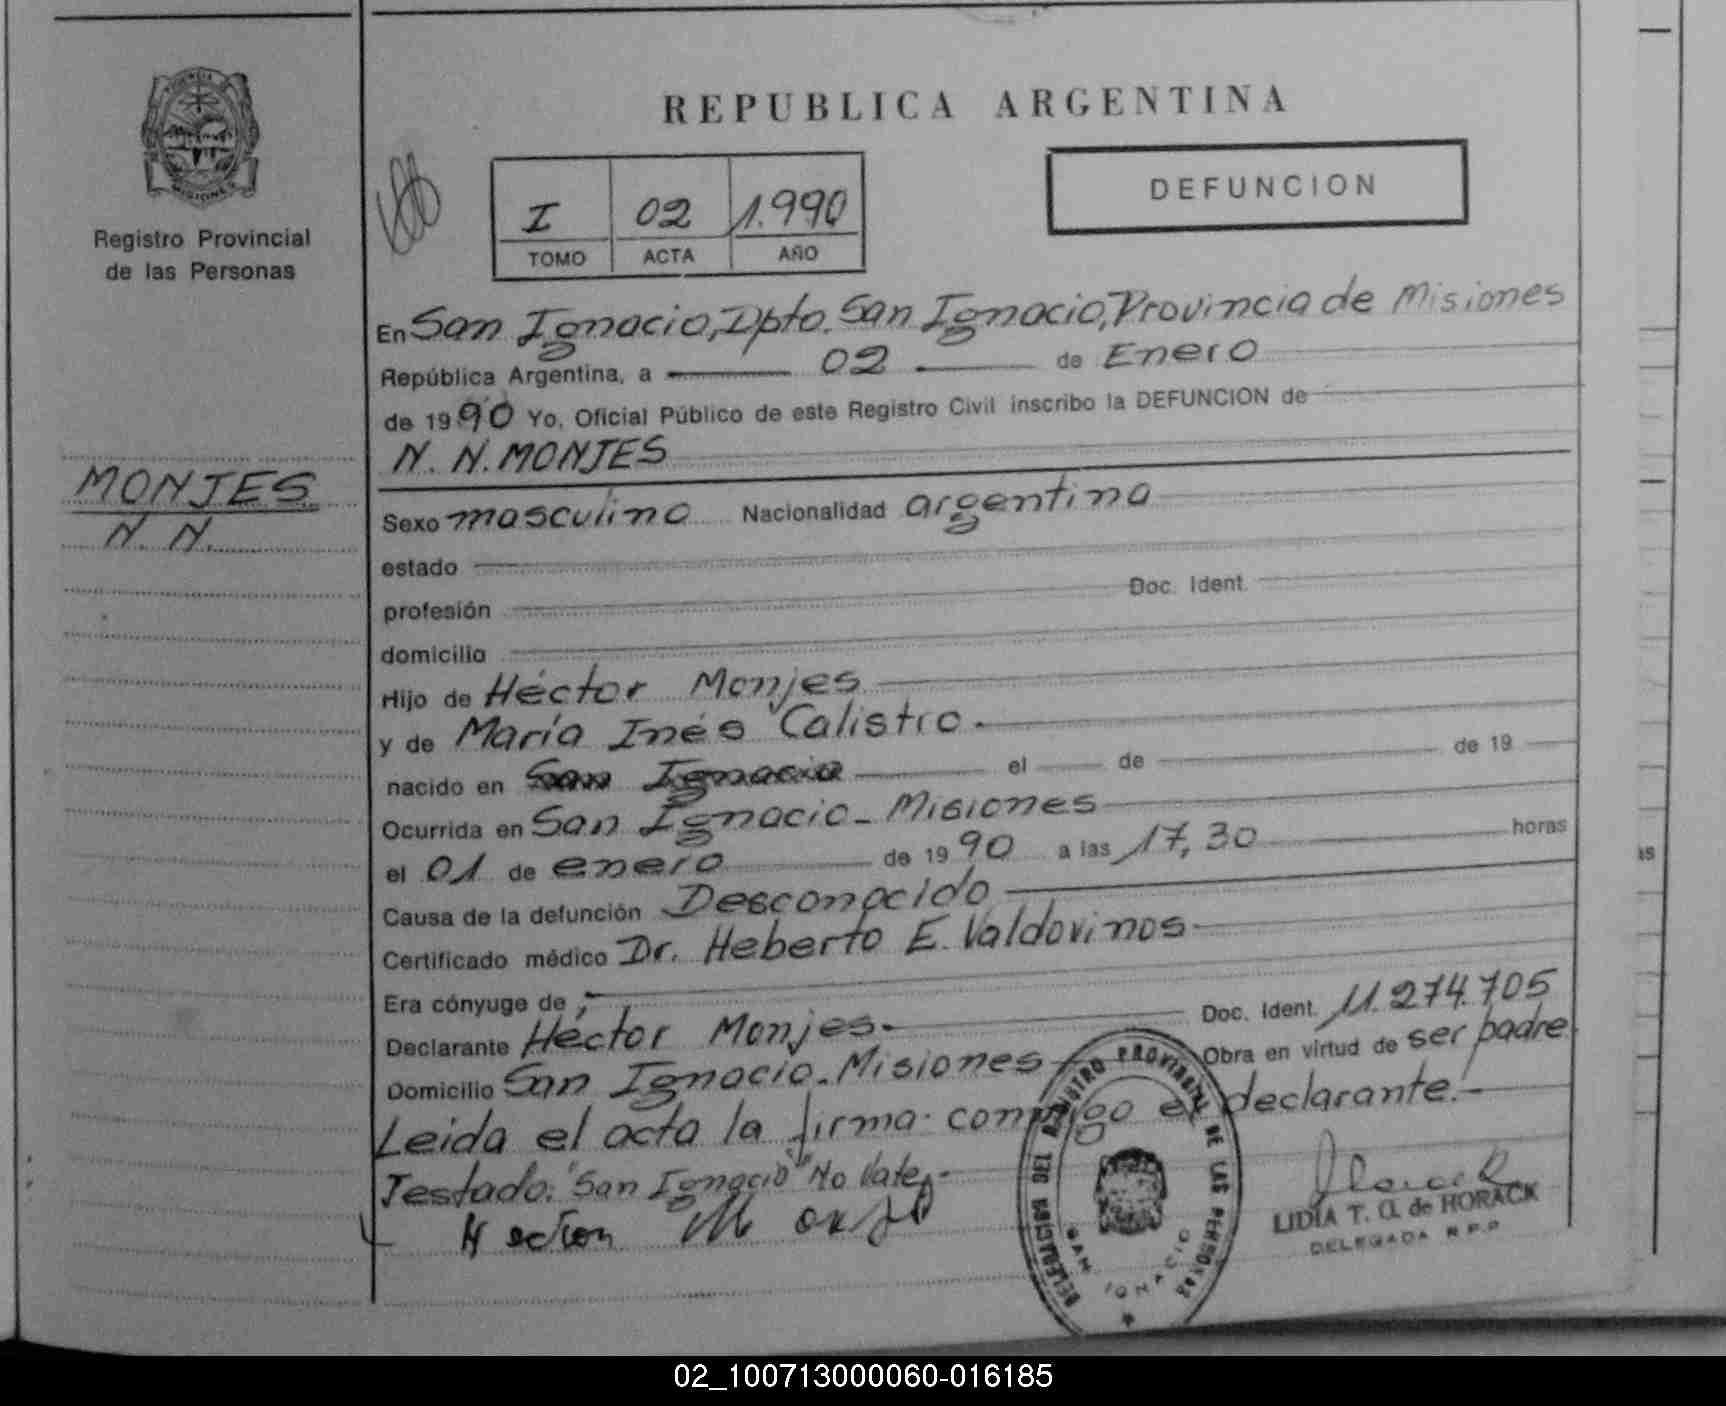 REPUBLICA ARGENTINA
PROVINCIA DE MISIONES
Registro Provincial
de las Personas
I 02 1.990
TOMO ACTA AÑO
DEFUNCION
En San Ignacio, Dpto. San Ignacio, Provincia de Misiones
República Argentina, a 02 de Enero
de 1990 Yo, Oficial Público de este Registro Civil inscribo la DEFUNCION de
N. N. MONJES
MONJES
N. N.
Sexo masculino Nacionalidad argentina
estado
profesión Doc. Ident.
domicilio
Hijo de Héctor Monjes
y de María Inés Calistro.
nacido en San Ignacio el de de 19
Ocurrida en San Ignacio - Misiones
el 01 de enero de 1990 a las 17,30 horas
Causa de la defunción Desconocido
Certificado médico Dr. Heberto E. Valdovinos
Era cónyuge de
Declarante Héctor Monjes.- Doc. Ident. 11.274.705
Domicilio San Ignacio - Misiones Obra en virtud de ser padre
Leida el acta la firma conmigo el declarante.-
Testado: "San Ignacio" No Vale.-
Hector Monjes
DELEGACION DEL REGISTRO PROVINCIAL DE LAS PERSONAS
SAN IGNACIO
LIDIA T. O. de HORACK
DELEGADA R.P.P
as
02_100713000060-016185